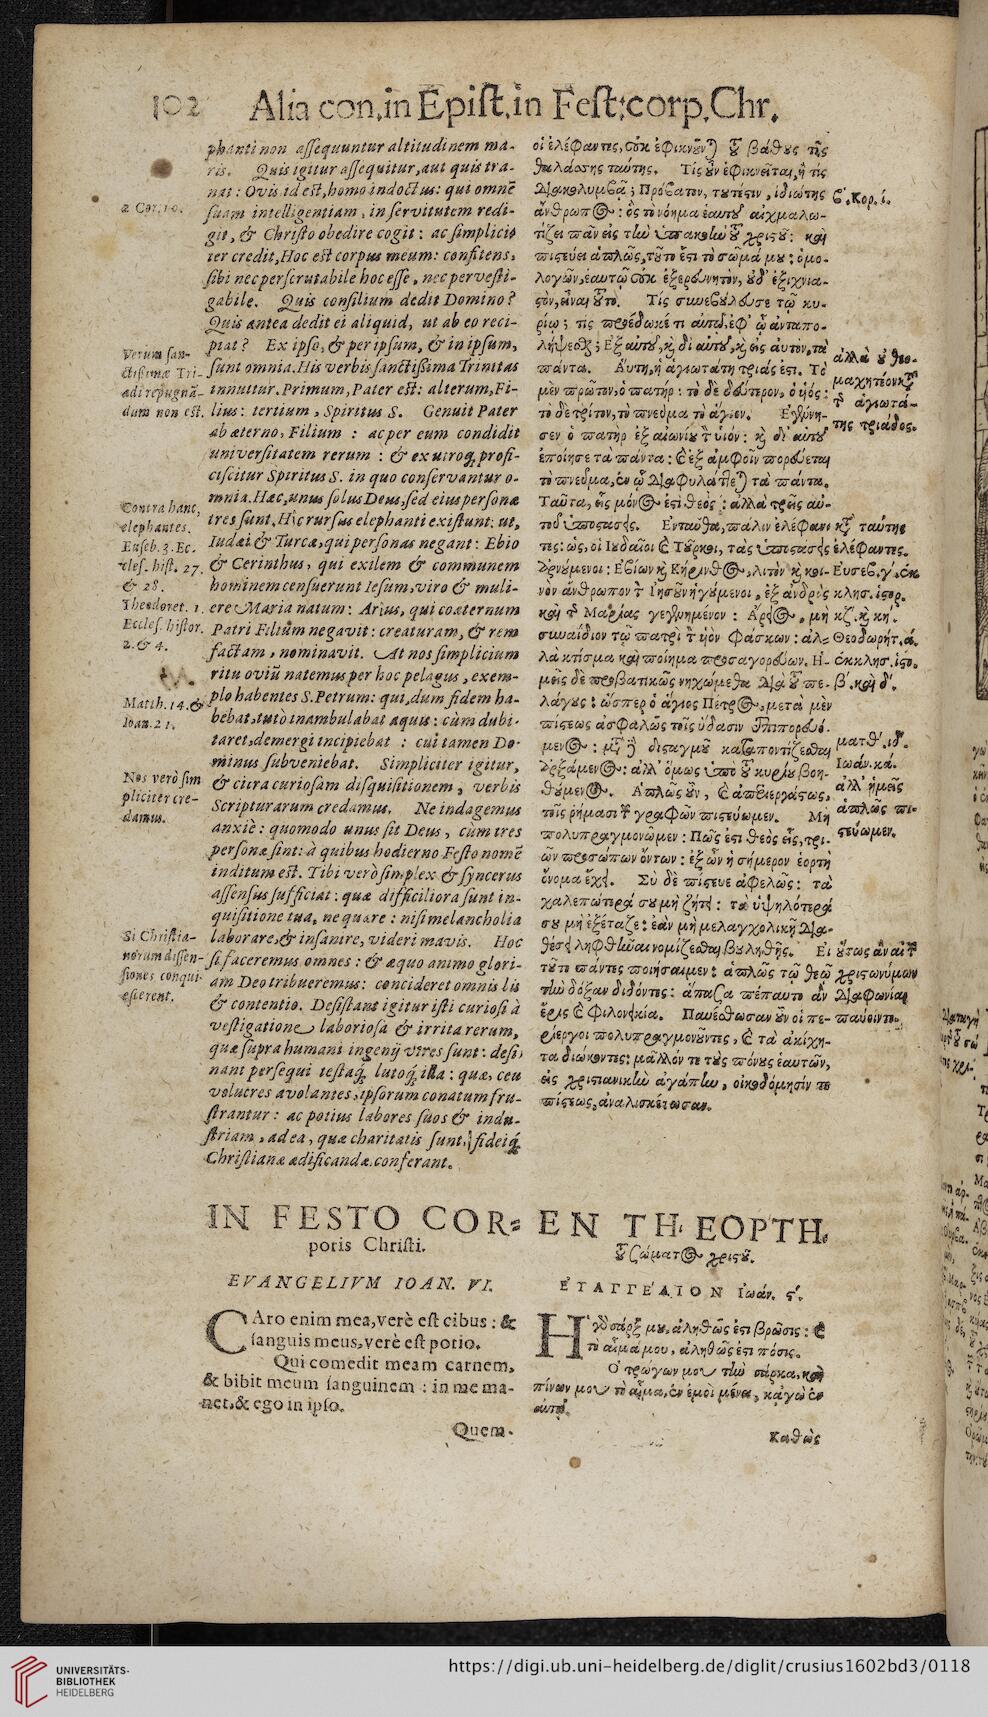 102 Alia con. in Epist. in Fest. corp. Chr.
phanti non assequuntur altitudinem ma-
ris. Quis igitur assequitur, aut quis tra-
nat: Ovis. id est, homo indoctus: qui omnē
suam intelligentiam, in servitutem redi-
git, & Christo obedire cogit: ac simplici-
ter credit, Hoc est corpus meum: confitens,
sibi nec perscrutabile hoc esse, nec pervesti-
gabile. Quis consilium dedit Domino?
Quis antea dedit ei aliquid, ut ab eo reci-
piat? Ex ipso, & per ipsum, & in ipsum,
sunt omnia. His verbis sanctissima Trinitas
innuitur. Primum, Pater est: alterum, Fi-
lius: tertium, Spiritus S. Genuit Pater
ab æterno, Filium: ac per eum condidit
universitatem rerum: & ex utroq; profi-
ciscitur Spiritus S. in quo conservantur o-
mnia. Hæc, unus solus Deus, sed eius personæ
tres sunt. Hîc rursus elephanti existunt: ut,
Iudæi & Turcæ, qui personas negant: Ebio
& Cerinthus, qui exilem & communem
hominem censuerunt Iesum, viro & muli-
ere Maria natum: Arius, qui coæternum
Patri Filium negavit: creaturam, & rem
factam, nominavit. At nos simplicium
ritu oviū natemus per hoc pelagus, exem-
plo habentes S. Petrum: qui, dum fidem ha-
bebat, tuto inambulabat aquis: cùm dubi-
taret, demergi incipiebat: cui tamen Do-
minus subveniebat. Simpliciter igitur,
& citra curiosam disquisitionem, verbis
Scripturarum credamus. Ne indagemus
anxiè: quomodo unus sit Deus, cùm tres
personæ sint: à quibus hodierno Festo nomē
inditum est. Tibi verò simplex & syncerus
assensus sufficiat: quæ difficiliora sunt in-
quisitione tua, ne quære: nisi melancholia
laborare, & insanire, videri mavis. Hoc
si faceremus omnes: & æquo animo glori-
am Deo tribueremus: concideret omnis lis
& contentio. Desistant igitur isti curiosi à
vestigatione laboriosa & irrita rerum,
quæ supra humani ingenij vires sunt: desi-
nant persequi testaq́; lutoq́; illa: quæ, ceu
volucres avolantes, ipsorum conatum fru-
strantur: ac potius labores suos & indu-
striam, ad ea, quæ charitatis sunt, fideiq́;
Christianæ ædificandæ, conferant.
2 Cor. 10.
Verum san-
ctissimæ Tri-
adi repugnā-
dum non est.
Contra hanc,
elephantes.
Euseb. 3. Ec-
cles. hist. 27.
& 28.
Theodoret. 1.
Eccles. histor.
2. & 4.
Matth. 14. &
Ioan. 21.
Nos verò sim
pliciter cre-
damus.
Si Christia-
norum dissen-
siones conqui-
escerent.
οἱ ἐλέφαντες, οὐκ ἐφικνοῦνται τοῦ βάθους τῆς
θαλάσσης ταύτης. Τίς οὖν ἐφικνεῖται, ἢ τίς
διακολυμβᾷ; Πρόβατον, τουτέστιν, ἰδιώτης
ἄνθρωπος: ὃς τὸ νόημα ἑαυτοῦ αἰχμαλω-
τίζει πᾶν εἰς τὴν ὑπακοὴν τοῦ χριστοῦ: καὶ
πιστεύει ἁπλῶς, τοῦτο ἐστὶ τὸ σῶμά μου: ὁμο-
λογῶν, ἑαυτῷ οὐκ ἐξερευνητὸν, οὐδ' ἐξιχνια-
στὸν, εἶναι τοῦτο. Τίς συνεβούλευσε τῷ κυ-
ρίῳ; τίς προέδωκέ τι αὐτῷ, ἐφ' ᾧ ἀνταπο-
λήψεσθαι; Ἐξ αὐτοῦ, καὶ δι' αὐτοῦ, καὶ εἰς αὐτὸν, τὰ
πάντα. Αὕτη, ἡ ἁγιωτάτη τριάς ἐστι. Τὸ
μὲν πρῶτον, ὁ πατήρ: τὸ δὲ δεύτερον, ὁ υἱός:
τὸ δὲ τρίτον, τὸ πνεῦμα τὸ ἅγιον. Ἐγέννη-
σεν ὁ πατὴρ ἐξ αἰωνίου τὸν υἱόν: καὶ δι' αὐτοῦ
ἐποίησε τὰ πάντα: καὶ ἐξ ἀμφοῖν πορεύεται
τὸ πνεῦμα, ἐν ᾧ διαφυλάττεται τὰ πάντα.
Ταῦτα, εἷς μόνος ἐστὶ θεὸς: ἀλλὰ τρεῖς αὐ-
τοῦ ὑποστάσεις. Ἐνταῦθα, πάλιν ἐλέφαν-
τες: ὡς, οἱ Ἰουδαῖοι καὶ Τοῦρκοι, τὰς ὑποστάσεις
ἀρνούμενοι: Ἐβίων καὶ Κήρινθος, λιτὸν καὶ κοι-
νὸν ἄνθρωπον τὸν Ἰησοῦν ἡγούμενοι, ἐξ ἀνδρὸς
καὶ τῆς Μαρίας γεγενημένον: Ἄρειος, μὴ
συναΐδιον τῷ πατρὶ τὸν υἱὸν φάσκων: ἀλ-
λὰ κτίσμα καὶ ποίημα προσαγορεύων. Ἡ-
μεῖς δὲ προβατικῶς νηχώμεθα διὰ τοῦ πε-
λάγους: ὥσπερ ὁ ἅγιος Πέτρος, μετὰ μὲν
πίστεως ἀσφαλῶς τοῖς ὕδασιν ἐπιπορευό-
μενος: μετὰ δὲ δισταγμοῦ καταποντίζεσθαι
ἀρξάμενος: ἀλλ' ὅμως ὑπὸ τοῦ κυρίου βοη-
θούμενος. Ἁπλῶς οὖν, καὶ ἀπεριεργάστως,
τοῖς ῥήμασι τῶν γραφῶν πιστεύωμεν. Μὴ
πολυπραγμονῶμεν: Πῶς ἐστὶ θεὸς εἷς, τρι-
ῶν προσώπων ὄντων: ἐξ ὧν ἡ σήμερον ἑορτὴ
ὄνομα ἔχει. Σὺ δὲ πίστευε ἀφελῶς: τὰ
χαλεπώτερά σου μὴ ζήτει: τὰ ὑψηλότερά
σου μὴ ἐξέταζε: ἐὰν μὴ μελαγχολικῇ δια-
θέσει ληφθῆναι νομίζεσθαι βουληθῇς. Εἰ
τοῦτο πάντες ποιήσαιμεν: ἁπλῶς τῷ θεῷ
τὴν δόξαν διδόντες: ἅπασα πέπαυτο ἂν
ἔρις καὶ φιλονεικία. Παυέσθωσαν οὖν οἱ πε-
ρίεργοι πολυπραγμονοῦντες, καὶ τὰ ἀκίχη-
τα διώκοντες: μᾶλλόν τε τοὺς πόνους ἑαυτῶν,
εἰς χριστιανικὴν ἀγάπην, οἰκοδόμησίν τε
πίστεως, ἀναλισκέτωσαν.
β'. Κορ. ί.
ἀλλὰ οὐ θεο-
μαχητέον κατὰ
τῆς ἁγιωτά-
της τριάδος.
κατὰ ταύτης
ἐλέφαντες.
Εὐσεβ. γ'. ἐκ
κλησ. ἱστορ.
κζ'. καὶ κή.
Θεοδωρήτ. ά.
ἐκκλησ. ἱστο.
β'. καὶ δ'.
ματθ'. ιδ'.
Ἰωάν. κά.
ἀλλ' ἡμεῖς
ἁπλῶς πι-
στεύωμεν.
οὕτως ἂν αἱ τῶν
χριστωνύμων
διαφωνίαι
παύοιντο.
IN FESTO COR-
poris Christi.
EVANGELIVM IOAN. VI.
CAro enim mea, verè est cibus: &
sanguis meus, verè est potio.
Qui comedit meam carnem,
& bibit meum sanguinem: in me ma-
net, & ego in ipso.
Quem-
ΕΝ ΤΗ ΕΟΡΤΗ
τοῦ σώματος χριστοῦ.
ΕΥΑΓΓΕΛΙΟΝ Ἰωάν. ς'.
Ἡ γὰρ σάρξ μου, ἀληθῶς ἐστι βρῶσις: καὶ
τὸ αἷμά μου, ἀληθῶς ἐστι πόσις.
Ὁ τρώγων μου τὴν σάρκα, καὶ
πίνων μου τὸ αἷμα, ἐν ἐμοὶ μένει, κἀγὼ ἐν
αὐτῷ.
Καθὼς
UNIVERSITÄTS-
BIBLIOTHEK
HEIDELBERG
https://digi.ub.uni-heidelberg.de/diglit/crusius1602bd3/0118